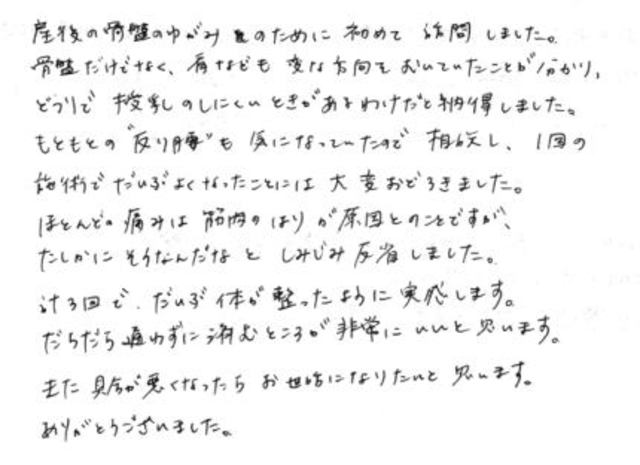 産後の骨盤のゆがみのために初めて訪問しました。
骨盤だけでなく、肩なども変な方向をむいていたことが分かり、
どうりで授乳のしにくいときがあるわけだと納得しました。
もともとの"反り腰"も気になっていたので相談し、1回の
施術でだいぶよくなったことには大変おどろきました。
ほとんどの痛みは筋肉のはりが原因とのことですが、
たしかにそうなんだなとしみじみ反省しました。
計3回で、だいぶ体が整ったように実感します。
だらだら通わずに済むところが非常にいいと思います。
また具合が悪くなったらお世話になりたいと思います。
ありがとうございました。